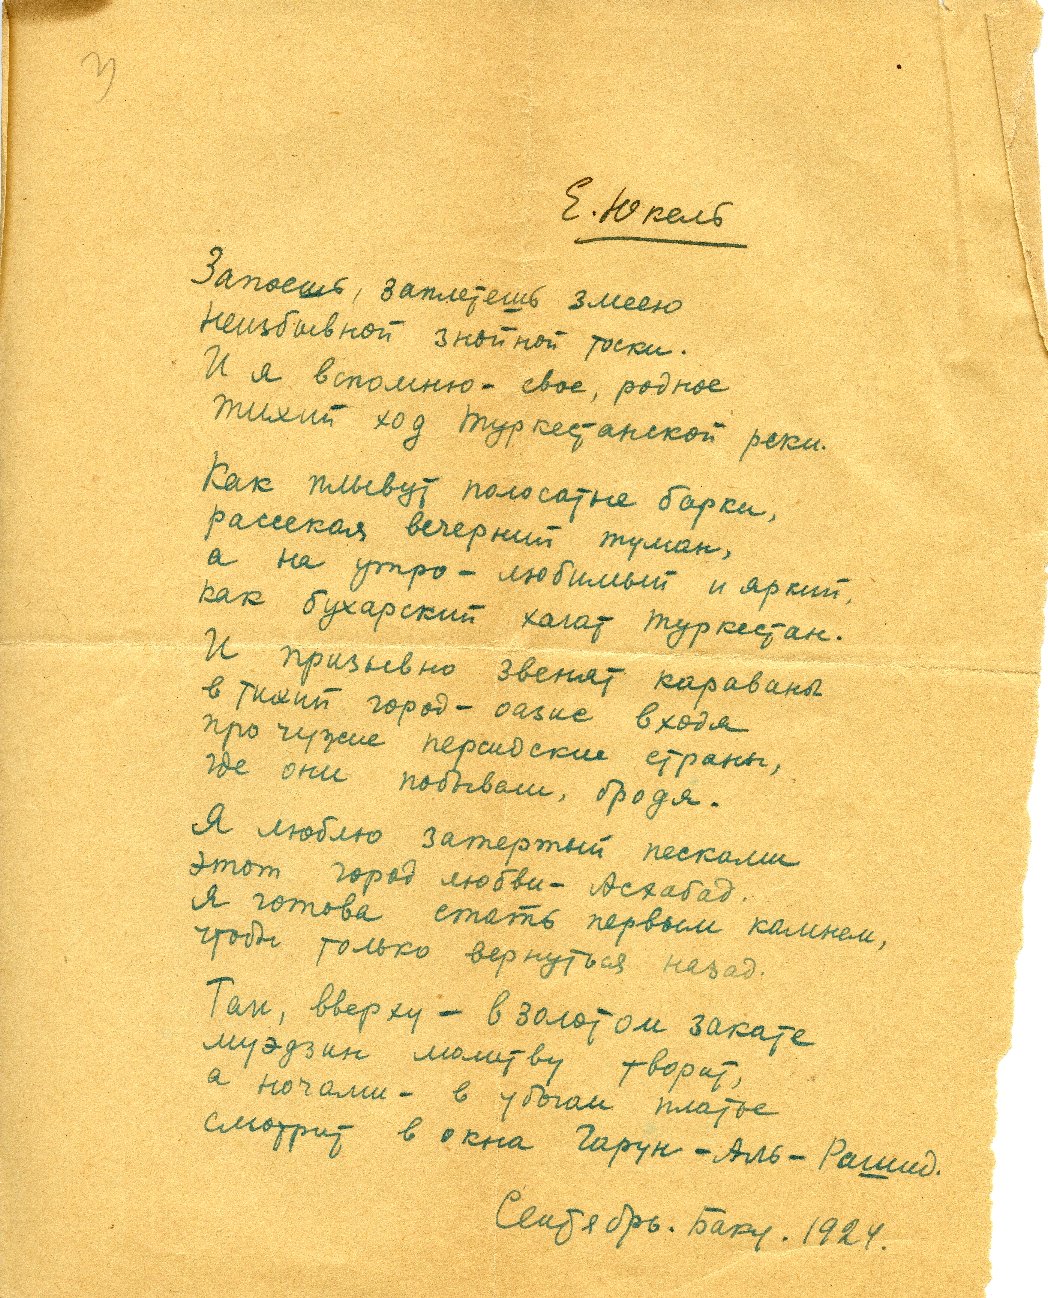 Е. Юкель
Запоешь, заплетешь змеею
Неизбывной знойной тоски.
И я вспомню – свое, родное
Тихий ход Туркестанской реки.
Как плывут полосатые барки,
рассекая вечерний туман,
а на утро – любимый и яркий,
как бухарский халат Туркестан.
И призывно звенят караваны
в тихий город – оазис входя
про чужие персидские страны,
где они побывали, бродя.
Я люблю затертый песками
этот город любви – Асхабад.
Я готова стать первым камнем,
чтобы только вернуться назад.
Там, вверху – в золотом закате
муэдзин молитву творит,
а ночами – в убогом платье
смотрит в окна Гарун – Аль – Рашид.
Сентябрь. Баку. 1924.